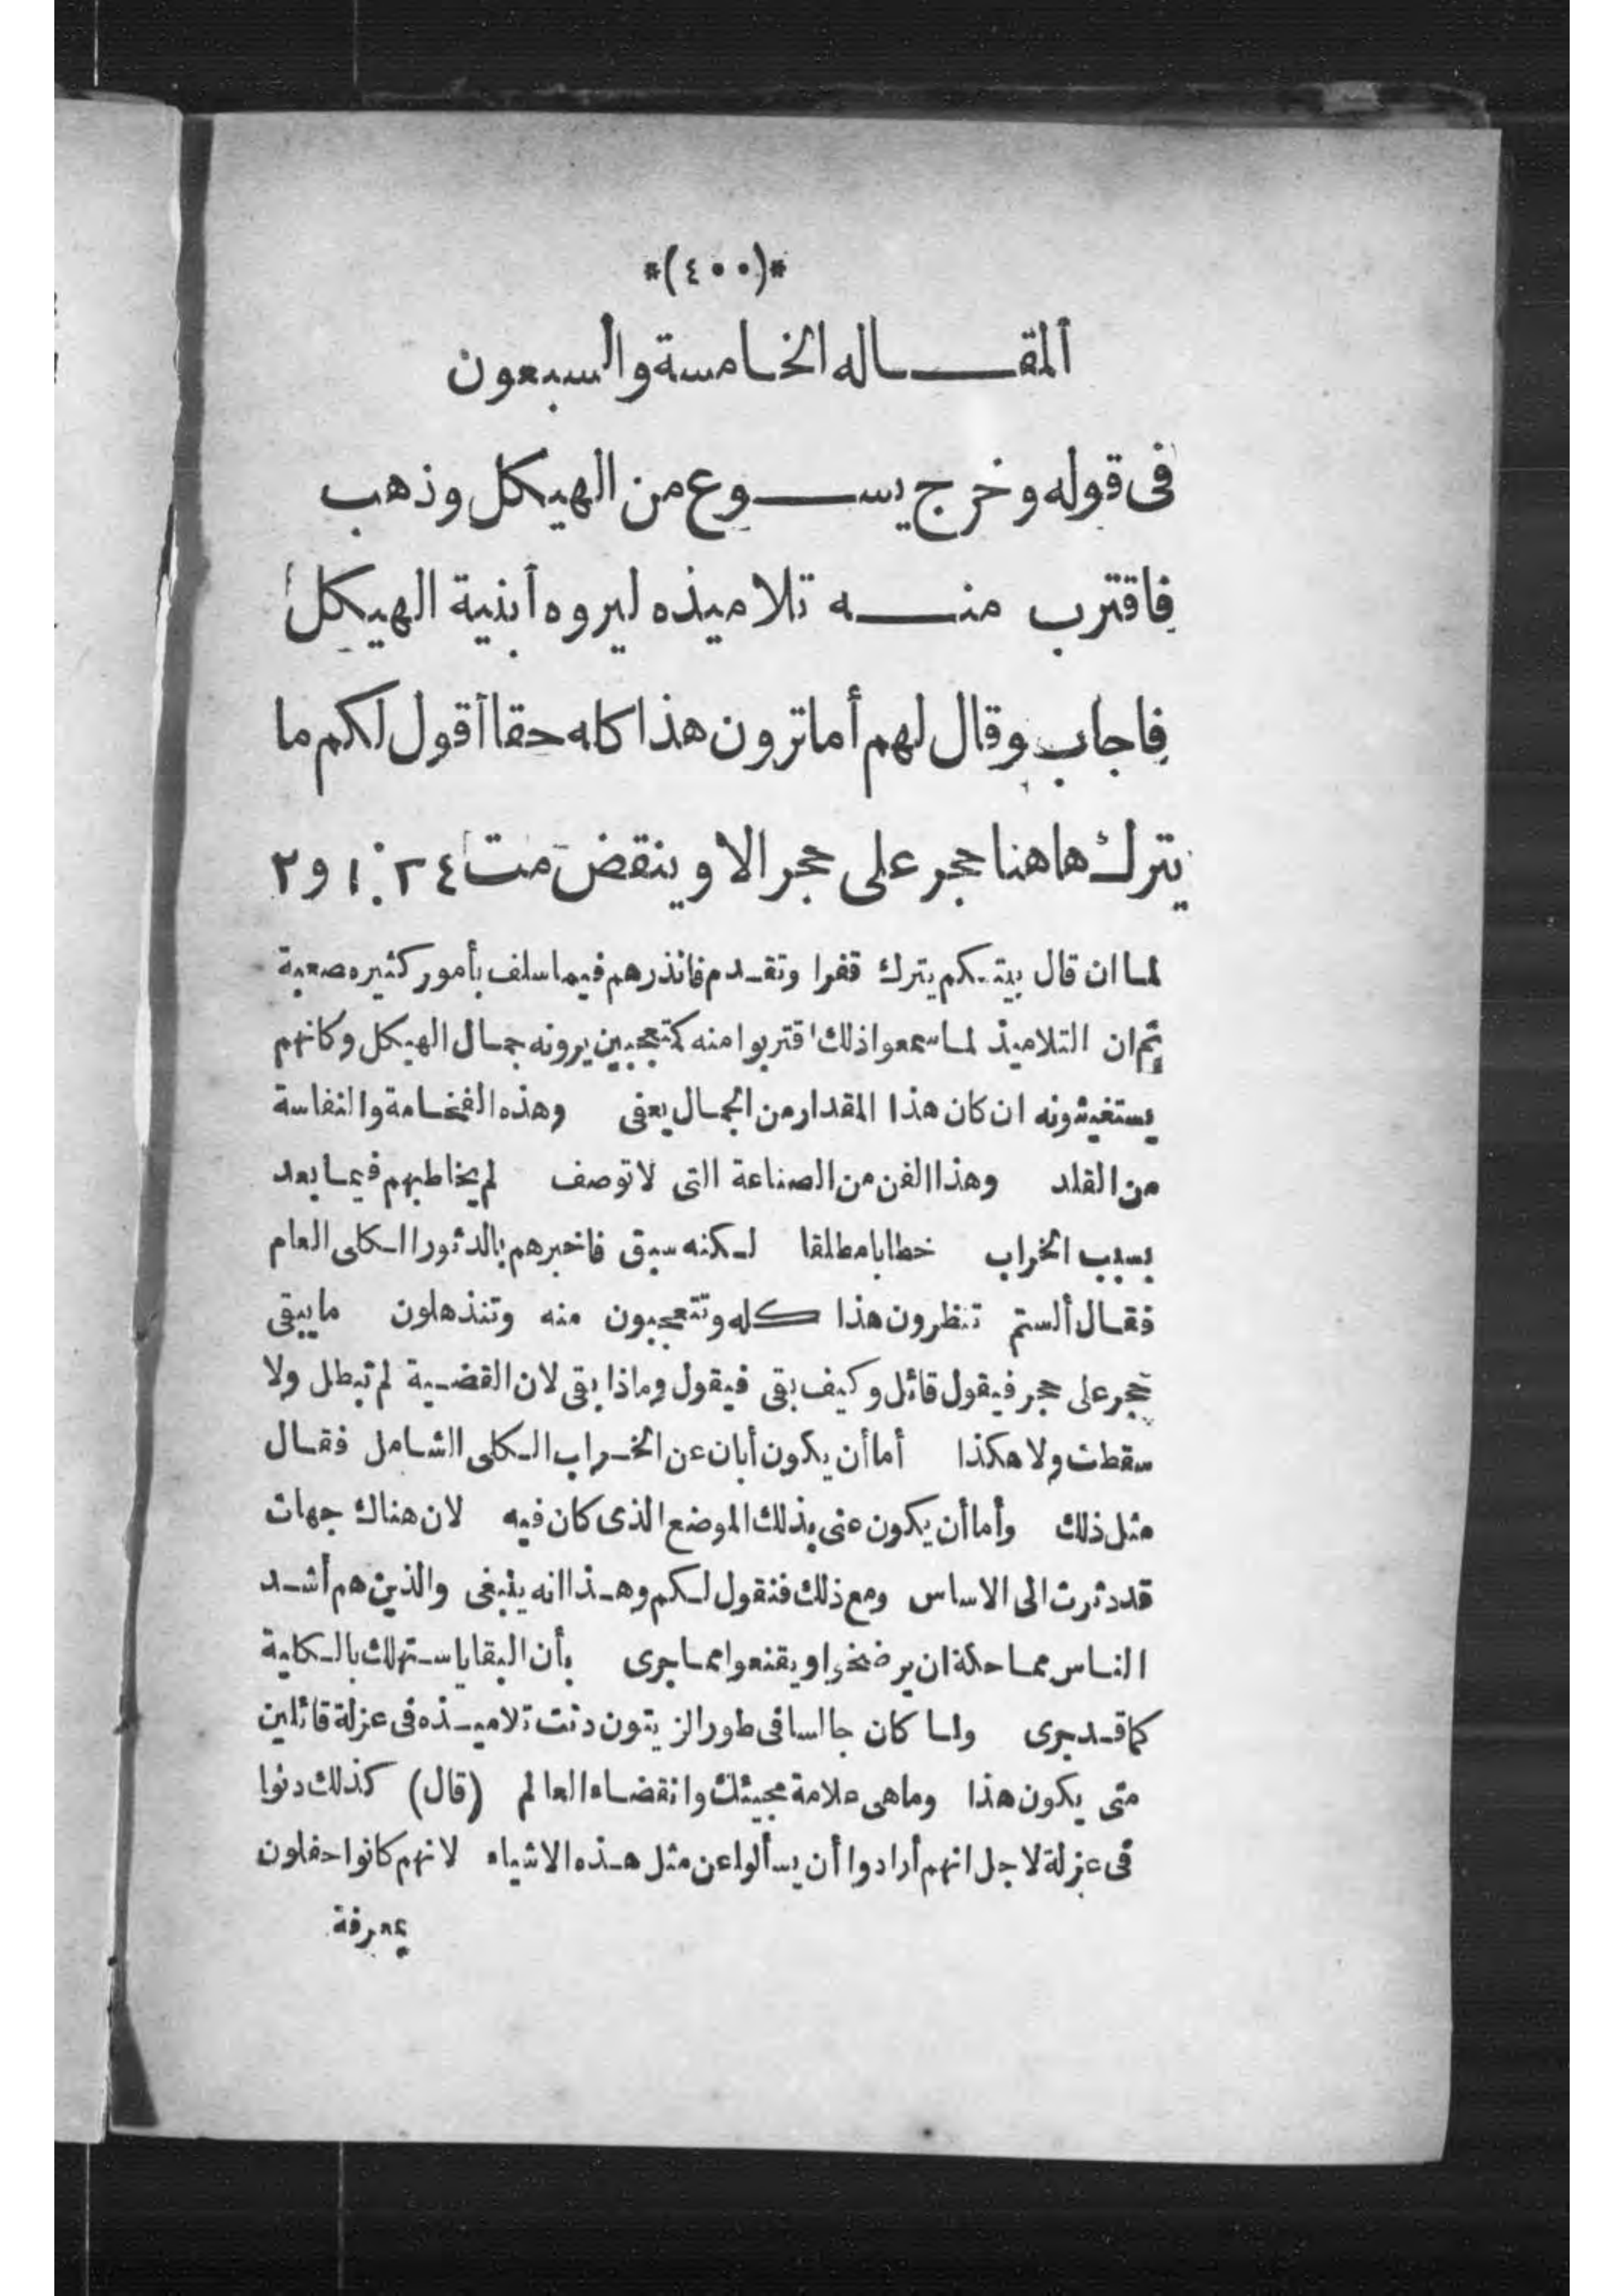 *(٤٠٠)*
ألمقاله الخامسة والسبعون
فى قوله وخرج يسوع من الهيكل وذهب
فاقترب منه تلاميذه ليروه أبنية الهيكل
فاجاب وقال لهم أما ترون هذا كله حقا أقول لكم ما
يترك هاهنا حجر على حجر الا وينقض مت ٢٤ : ١ و ٢
لما ان قال بيتكم يترك قفرا وتقدم فانذرهم فيما سلف بأمور كثيره صعبة
ثم ان التلاميذ لما سمعوا ذلك اقتربوا منه كمتعجبين يرونه جمال الهيكل وكانهم
يستغيثونه ان كان هذا المقدار من الجمال يعفى وهذه الفخامة والنفاسة
من القلد وهذا الفن من الصناعة التى لا توصف لم يخاطبهم فيما بعد
بسبب الخراب خطابا مطلقا لكنه سبق فاخبرهم بالدثور الكلى العام
فقال ألستم تنظرون هذا كله وتتعجبون منه وتنذهلون ما يبقى
حجر على حجر فيقول قائل وكيف بقى فيقول وماذا بقى لان القضية لم تبطل ولا
سقطت ولا هكذا أما أن يكون أبان عن الخراب الكلى الشامل فقال
مثل ذلك وأما أن يكون عنى بذلك الموضع الذى كان فيه لان هناك جهات
قد دثرت الى الاساس ومع ذلك فنقول لكم وهذا انه ينبغى والذين هم أشد
الناس مماحكة ان يرضخوا ويقنعوا مما جرى بأن البقايا ستهلك بالكلية
كما قد جرى ولما كان جالسا فى طور الزيتون دنت تلاميذه فى عزلة قائلين
متى يكون هذا وما هى علامة مجيئك وانقضاء العالم (قال) كذلك دنوا
فى عزلة لاجل انهم أرادوا أن يسألوا عن مثل هذه الاشياء لانهم كانوا حفلون
بمعرفة